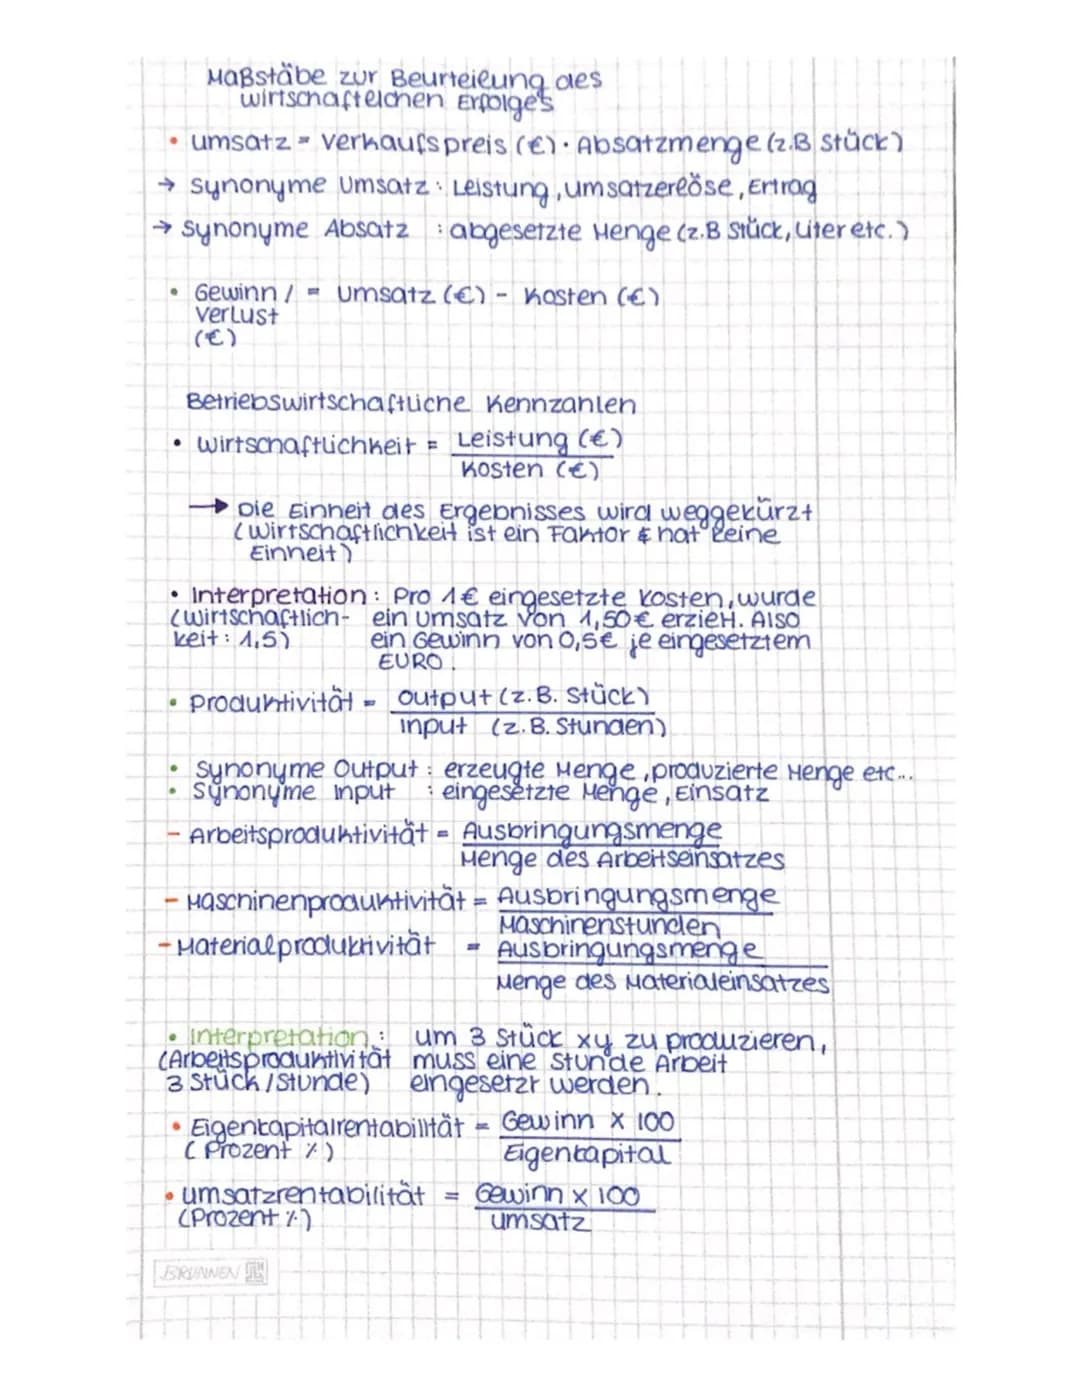 Maßstäbe zur Beurteilung des
wirtschaftlichen Erfolges
• Umsatz = Verkaufspreis (€) · Absatzmenge (z.B Stück)
→ Synonyme Umsatz : Leistung, Umsatzerlöse, Ertrag
→ Synonyme Absatz : abgesetzte Menge (z.B Stück, Liter etc.)
• Gewinn / = Umsatz (€) - Kosten (€)
Verlust
(€)
Betriebswirtschaftliche Kennzahlen
• Wirtschaftlichkeit = Leistung (€)
Kosten (€)
→ Die Einheit des Ergebnisses wird weggekürzt
(Wirtschaftlichkeit ist ein Faktor & hat keine
Einheit)
• Interpretation : Pro 1€ eingesetzte Kosten, wurde
(Wirtschaftlich- ein Umsatz von 1,50€ erzielt. Also
keit : 1,5) ein Gewinn von 0,5€ je eingesetztem
EURO.
• Produktivität = Output (z.B. Stück)
Input (z.B. Stunden)
• Synonyme Output : erzeugte Menge, produzierte Menge etc...
• Synonyme Input : eingesetzte Menge, Einsatz
- Arbeitsproduktivität = Ausbringungsmenge
Menge des Arbeitseinsatzes
- Maschinenproduktivität = Ausbringungsmenge
Maschinenstunden
- Materialproduktivität = Ausbringungsmenge
Menge des Materialeinsatzes
• Interpretation : um 3 Stück xy zu produzieren,
(Arbeitsproduktivität muss eine Stunde Arbeit
3 Stück / Stunde) eingesetzt werden.
• Eigenkapitalrentabilität = Gewinn x 100
(Prozent %) Eigenkapital
• Umsatzrentabilität = Gewinn x 100
(Prozent %) Umsatz
BRUNNEN